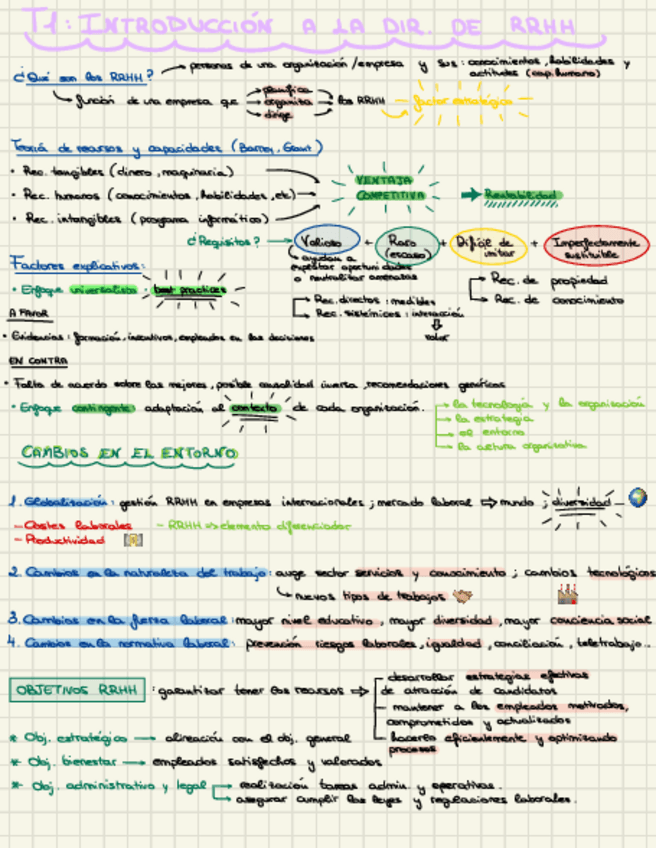 T1: INTRODUCCIÓN A LA DIR. DE RRHH
¿Qué son los RRHH? → personas de una organización/empresa y sus: conocimientos, habilidades y
actitudes (cap. humano)
función de una empresa que planifica
organiza los RRHH - factor estratégico
dirige
Teoría de recursos y capacidades (Barney, Grant)
• Rec. tangibles (dinero, maquinaria)
• Rec. humanos (conocimientos, habilidades, etc) → VENTAJA COMPETITIVA → Rentabilidad
• Rec. intangibles (programa informático)
¿Requisitos? → Valioso + Raro (escaso) + Difícil de imitar + Imperfectamente sustituible
ayudan a
explotar oportunidades
o neutralizar amenazas
Rec. de propiedad
Rec. de conocimiento
Rec. directos: medibles
Rec. sistémicos: interacción
valor
Factores explicativos:
• Enfoque universalista: best practices
A FAVOR
• Evidencias: formación, incentivos, empleados en las decisiones
EN CONTRA
• Falta de acuerdo sobre las mejores, posible causalidad inversa, recomendaciones genéricas
• Enfoque contingente: adaptación al contexto de cada organización.
la tecnología y la organización
la estrategia
el entorno
la cultura organizativa
CAMBIOS EN EL ENTORNO
1. Globalización: gestión RRHH en empresas internacionales; mercado laboral ⇒ mundo; diversidad
- Costes laborales - RRHH ⇒ elemento diferenciador
- Productividad
2. Cambios en la naturaleza del trabajo: auge sector servicios y conocimiento; cambios tecnológicos
nuevos tipos de trabajos
3. Cambios en la fuerza laboral: mayor nivel educativo, mayor diversidad, mayor conciencia social
4. Cambios en la normativa laboral: prevención riesgos laborales, igualdad, conciliación, teletrabajo...
OBJETIVOS RRHH: garantizar tener los recursos ⇒
desarrollar estrategias efectivas
de atracción de candidatos
mantener a los empleados motivados,
comprometidos y actualizados
hacerlo eficientemente y optimizando
procesos
* Obj. estratégico → alineación con el obj. general
* Obj. bienestar → empleados satisfechos y valorados
* Obj. administrativo y legal → realización tareas admin. y operativas.
→ asegurar cumplir las leyes y regulaciones laborales.